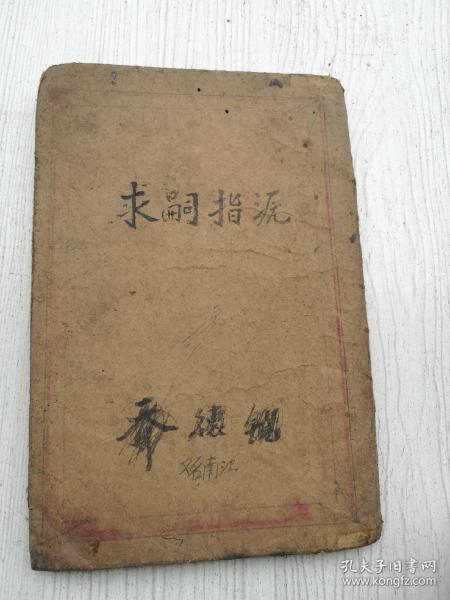 求嗣指源
德
南江
孔夫子旧书网
www.kongfz.com